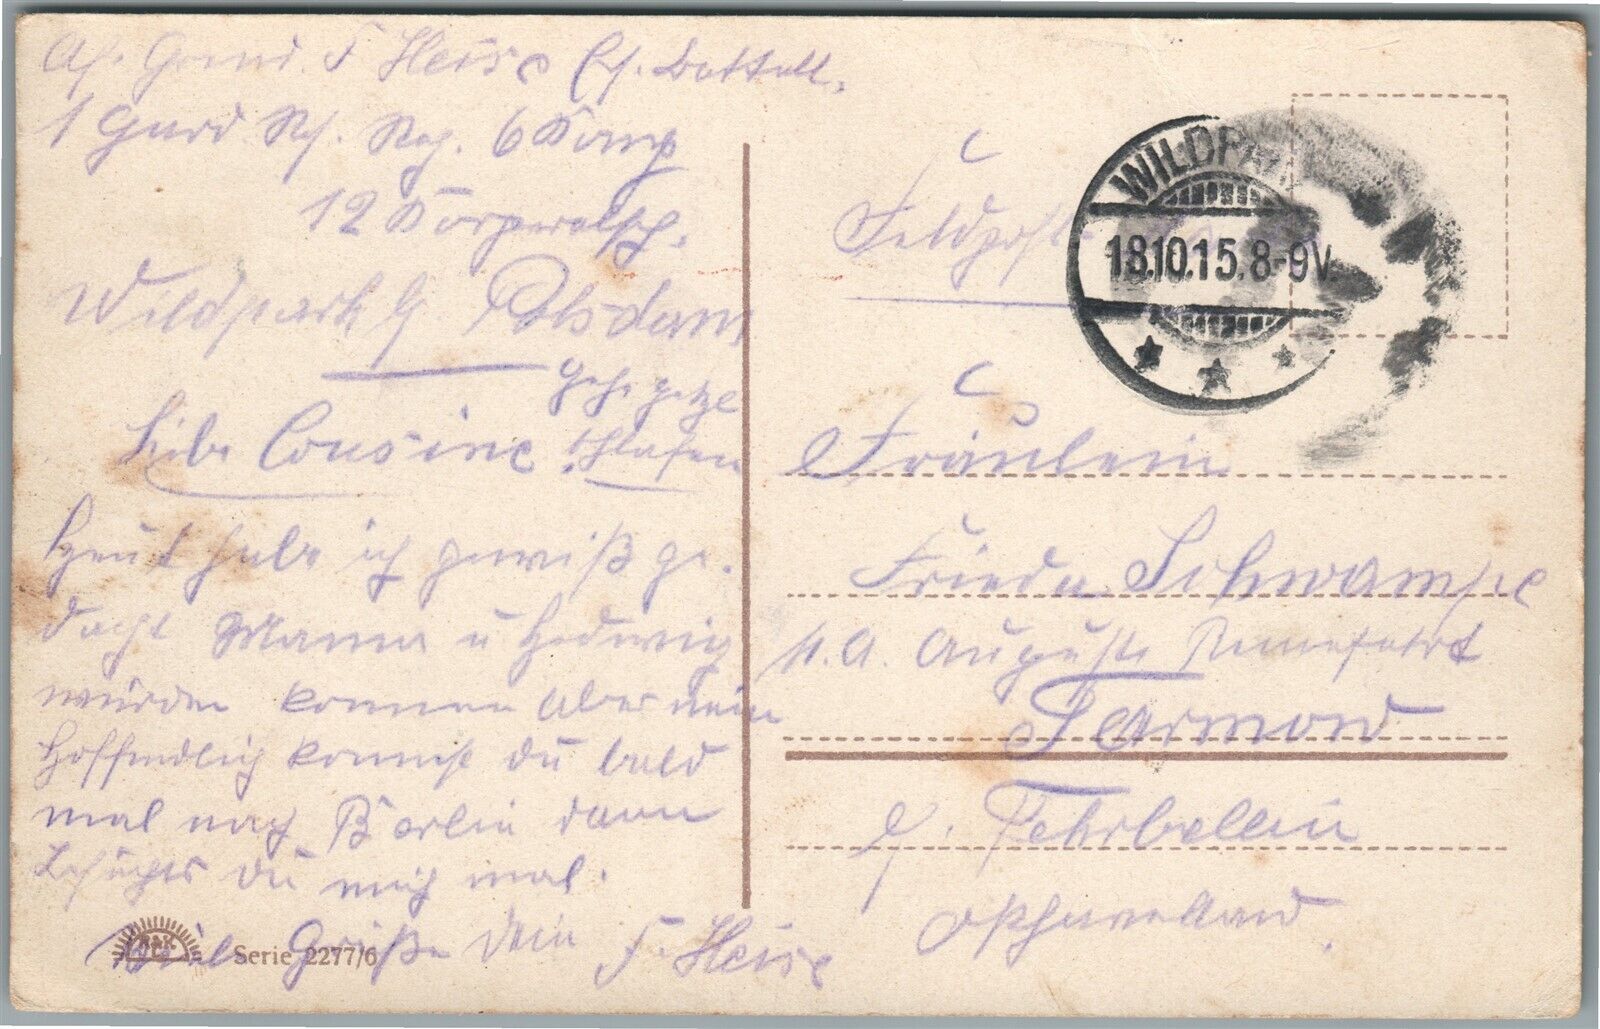 Abs. Gren. F Heise Ers. Batall.
1 Gard Rs. Reg. 6 Komp
12 Korporalsch.
Wildpark b. Potsdam
Gehe jetzt
schlafen
Liebe Cousine!
Heut habe ich gewiß ge-
dacht Mama u Hedwig
würden kommen aber nein
Hoffendlich kommst du bald
mal nach Berlin dann
besuchts du mich mal.
Viele Grüße dein F. Heise
Serie 2277/6
WILDPARK
18.10.15.8-9V.
Feldpost
Fräulein
Frieda Schwampe
Auguste
Tarmow
b. Fehrbellin
Osthavelland.